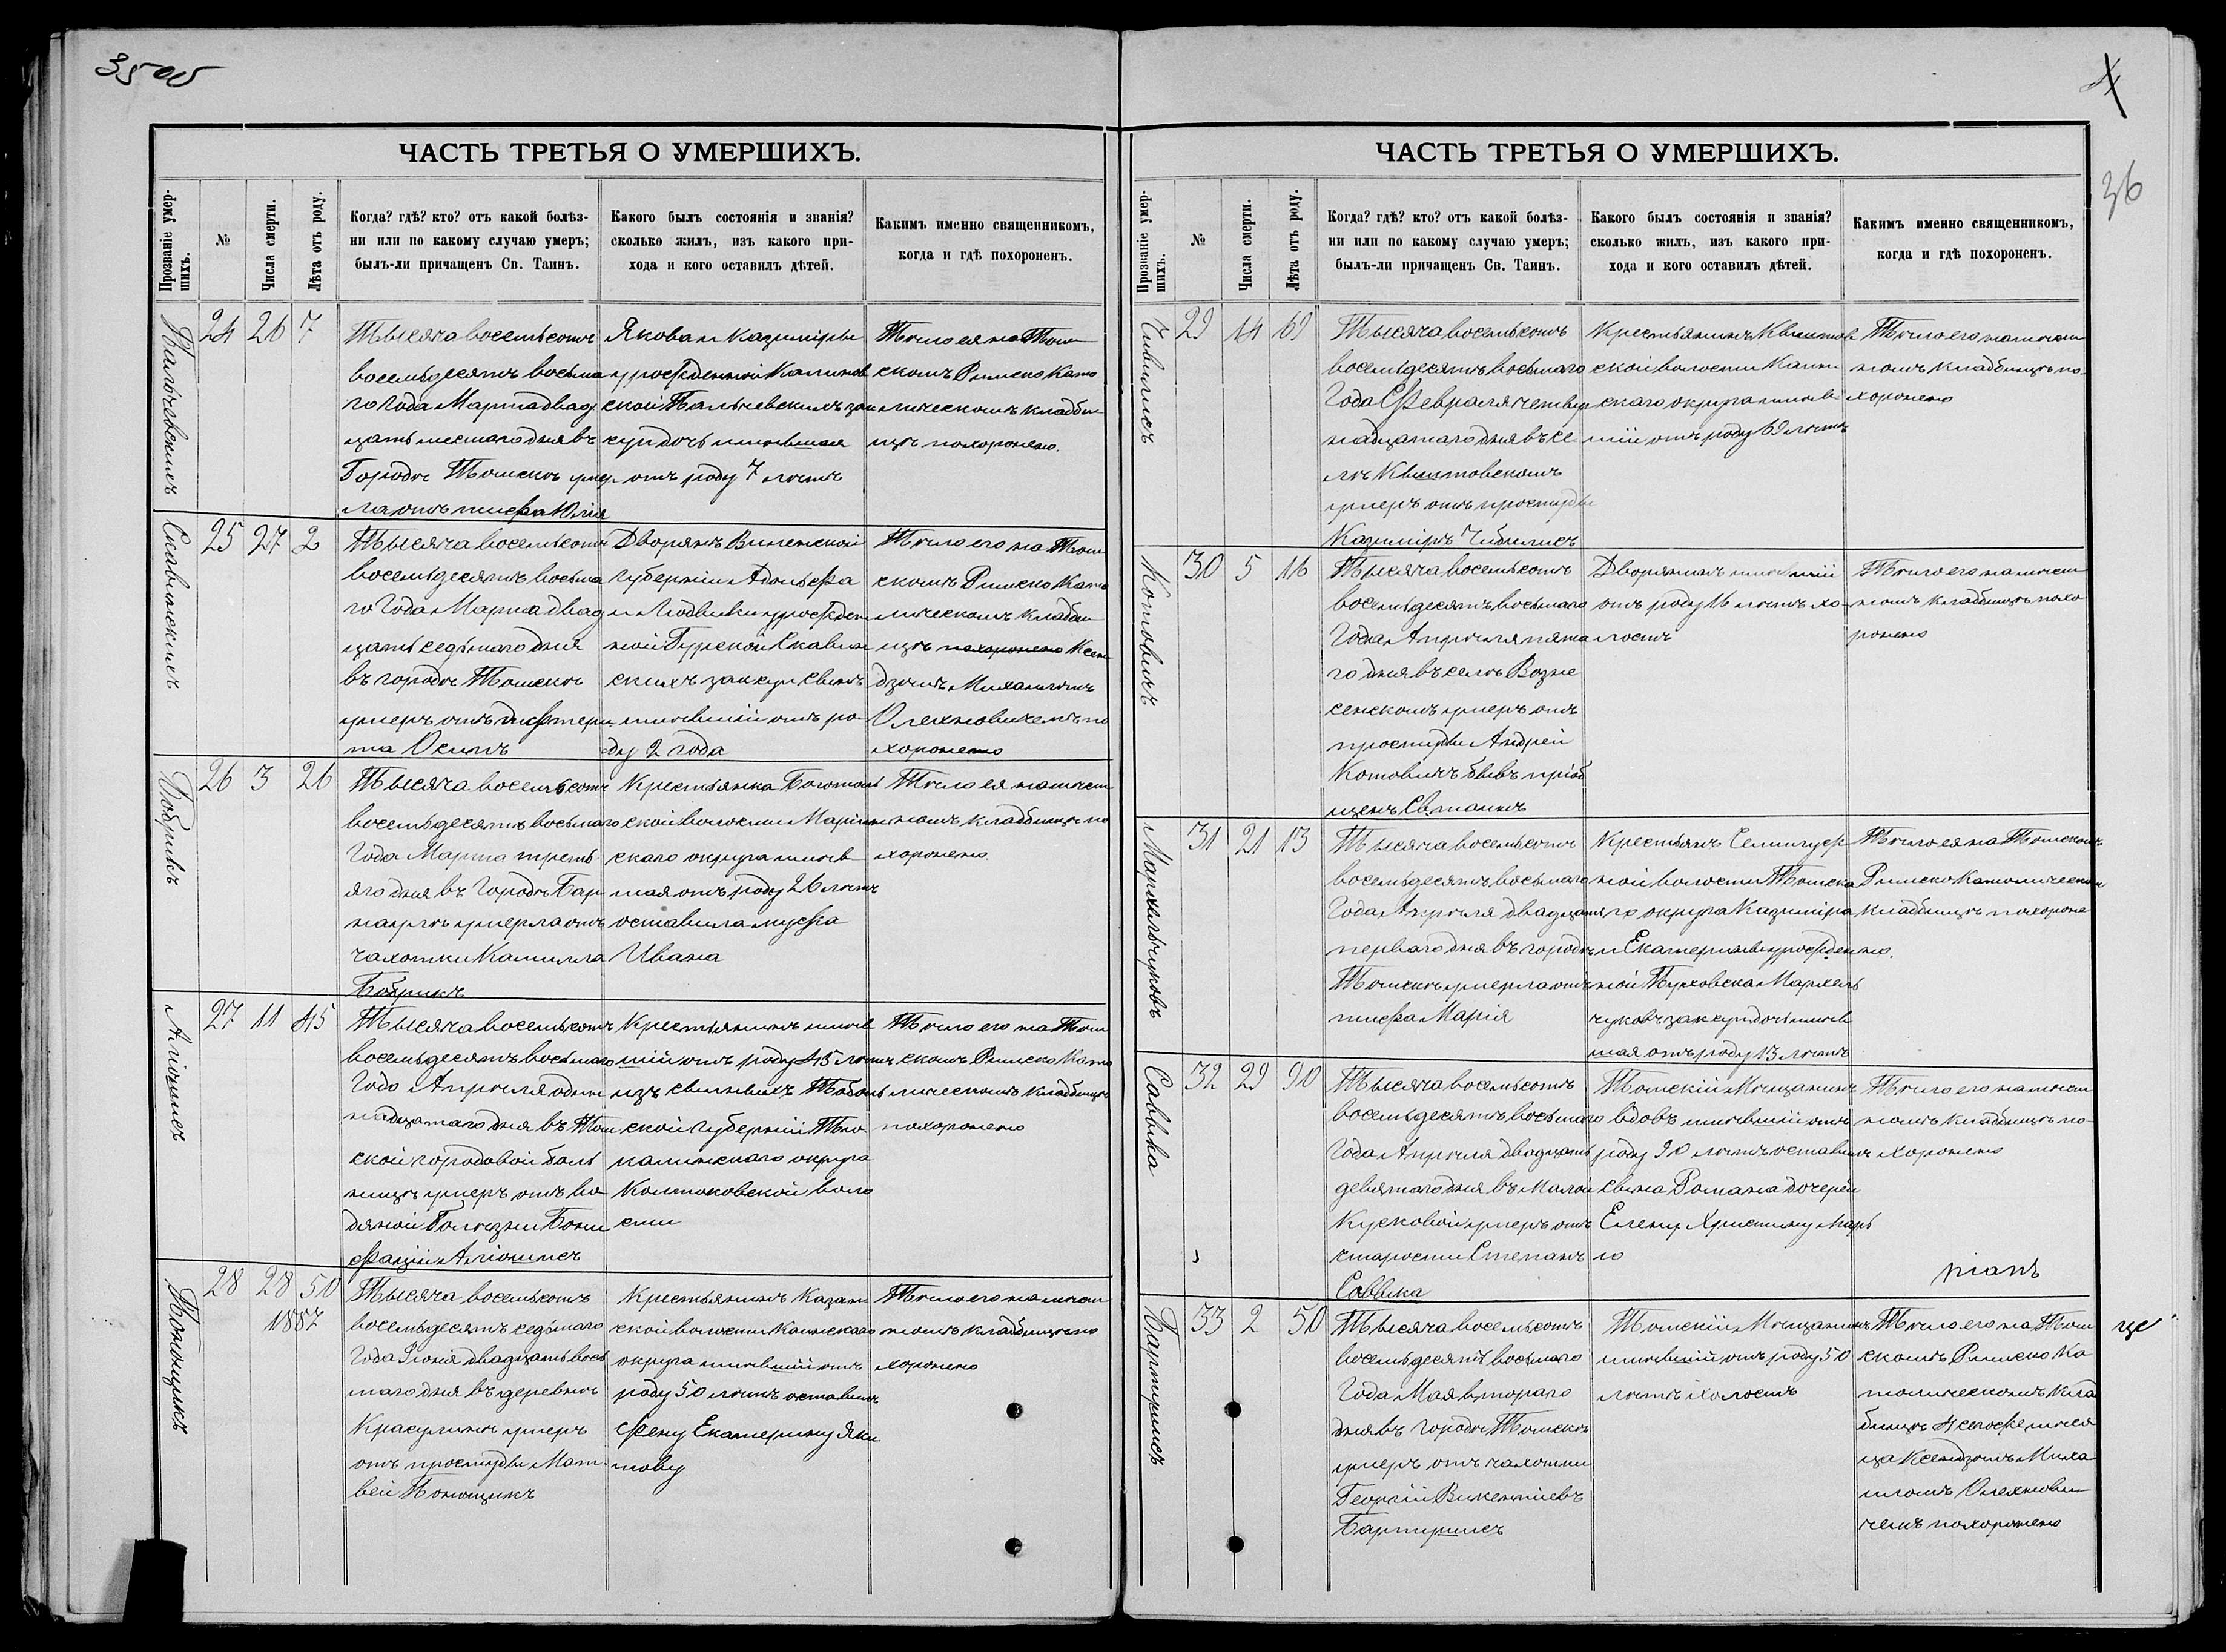 3500
ЧАСТЬ ТРЕТЬЯ О УМЕРШИХЪ.
Прозваніе умер-
шихъ.
№
Числа смерти.
Лѣта отъ роду.
Когда? гдѣ? кто? отъ какой болѣз-
ни или по какому случаю умеръ;
былъ-ли причащенъ Св. Таинъ.
Какого былъ состоянія и званія?
сколько жилъ, изъ какого при-
хода и кого оставилъ дѣтей.
Какимъ именно священникомъ,
когда и гдѣ похороненъ.
24 26 7
Тысяча восемьсотъ
восемьдесятъ восьма
го Года Марта двад
цать шестаго дня въ
Городѣ Томскѣ умер
ла отъ тифа Юлія
Якова и Казиміры
урожденной Калинов
ской Пальчевскихъ зак
кун дочь имѣвшая
отъ роду 7 лѣтъ
Тѣло ея на Том
скомъ Римско Като
лическомъ кладби
щѣ похоронено.
25 27 2
Тысяча восемьсотъ
восемьдесятъ восьма
го Года Марта двад
цать седьмаго дня
въ городѣ Томскѣ
умеръ отъ дифтери
та Осипъ
Дворянъ Виленской
Губерніи Адольфа
и Людвики урожден
ной Гурской Скавин
скихъ зак кун сынъ
имѣвшій отъ ро
ду 2 года
Тѣло его на Том
скомъ Римско Като
лическомъ кладби
щѣ похоронено Ксен
дзомъ Михаиломъ
Олехновичемъ по
хоронено
Бобрикъ
26 3 26
Тысяча восемьсотъ
восемьдесятъ восьмаго
Года Марта треть
яго дня въ Городѣ Бар
наулѣ умерла отъ
чахотки Камилла
Бобрикъ
Крестьянка Боготоль
ской волости Маріин
скаго округа имѣв
шая отъ роду 26 лѣтъ
оставила мужа
Ивана
Тѣло ея на мѣст
номъ кладбищѣ по
хоронено.
27 11 45
Тысяча восемьсотъ
восемьдесятъ восьмаго
Года Апрѣля один
надцатаго дня въ Том
ской городовой боль
ницѣ умеръ отъ во
дяной Болѣзни Бони
фацій Алюшисъ
Крестьянинъ имѣв
шій отъ роду 45 лѣтъ
изъ ссыльныхъ Тоболь
ской Губерніи Тю
калинскаго округа
воло
сти
Тѣло его на Том
скомъ Римско Като
лическомъ кладбищѣ
похоронено
28 28 50
1887
Тысяча восемьсотъ
восемьдесятъ седьмаго
Года Іюнія двадцать вось
маго дня въ деревнѣ
умеръ
отъ простуды Мат
вей
Крестьянинъ Казан
ской волости Каинскаго
округа имѣвшій отъ
роду 50 лѣтъ оставилъ
жену Екатерину Яки
мову
Тѣло его на мѣст
номъ кладбищѣ по
хоронено
36
ЧАСТЬ ТРЕТЬЯ О УМЕРШИХЪ.
Прозваніе умер-
шихъ.
№
Числа смерти.
Лѣта отъ роду.
Когда? гдѣ? кто? отъ какой болѣз-
ни или по какому случаю умеръ;
былъ-ли причащенъ Св. Таинъ.
Какого былъ состоянія и званія?
сколько жилъ, изъ какого при-
хода и кого оставилъ дѣтей.
Какимъ именно священникомъ,
когда и гдѣ похороненъ.
29 14 69
Тысяча восемьсотъ
восемьдесятъ восьмаго
Года Февраля четыр
надцатаго дня въ се
лѣ Квитовскомъ
умеръ отъ простуды
Казиміръ
Крестьянинъ Квитов
ской волости Каин
скаго округа имѣв
шій отъ роду 69 лѣтъ
Тѣло его на мѣст
номъ кладбищѣ по
хоронено
Котовичъ
30 5 16
Тысяча восемьсотъ
восемьдесятъ восьмаго
Года Апрѣля пята
го дня въ селѣ Возне
сенскомъ умеръ отъ
простуды Андрей
Котовичъ бывъ пріоб
щенъ Св. таинъ
Дворянинъ имѣвшій
отъ роду 16 лѣтъ хо
лостъ
Тѣло его на мѣст
номъ кладбищѣ похо
ронено
Мархельчуковъ
31 21 13
Тысяча восемьсотъ
восемьдесятъ восьмаго
Года Апрѣля двадцать
перваго дня въ городѣ
Томскѣ умерла отъ
тифа Марія
Крестьянъ Семилуж
ной волости Томска
го округа Казиміра
и Екатерины урожден
ной Мархель
чуковъ зак кун дочь имѣв
шая отъ роду 13 лѣтъ
Тѣло ея на Томскомъ
Римско Католическомъ
кладбищѣ похороне
но.
Саввка
32 29 90
Тысяча восемьсотъ
восемьдесятъ восьмаго
Года Апрѣля двадцать
девятаго дня въ Малой
Кусковой умеръ отъ
старости Степанъ
Саввка
Томскій Мѣщанинъ
вдовъ имѣвшій отъ
роду 90 лѣтъ оставилъ
сына Романа дочерей
Елену Христину Марь
ю
Тѣло его на мѣст
номъ кладбищѣ по-
хоронено
Бартушисъ
33 2 50
Тысяча восемьсотъ
восемьдесятъ восьмаго
Года Мая втораго
дня въ городѣ Томскѣ
умеръ отъ чахотки
Георгій Викентіевъ
Бартушисъ
Томскій Мѣщанинъ
имѣвшій отъ роду 50
лѣтъ холостъ
Тѣло его на Том
скомъ Римско Ка
толическомъ клад
бищѣ 4 сегоже мѣся
ца Ксендзомъ Миха
иломъ Олехнови
чемъ похоронено